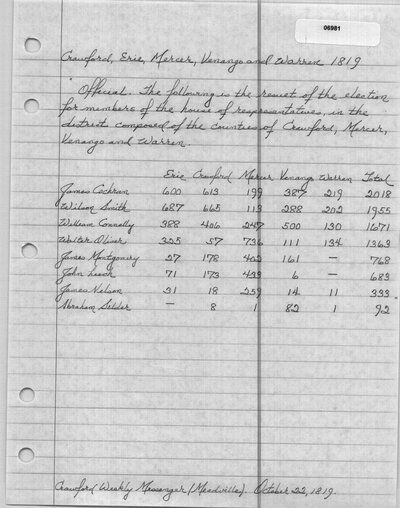 06981
Crawford, Erie, Mercer, Venango and Warren 1819
Official. The following is the result of the election
for members of the house of representatives, in the
district composed of the counties of Crawford, Mercer,
Venango and Warren.
Erie Crawford Mercer Venango Warren Total
James Cochran 600 613 199 387 219 2018
Wilson Smith 687 665 113 288 202 1955
William Connelly 388 406 247 500 130 1671
Walter Oliver 325 57 736 111 134 1363
James Montgomery 27 178 402 161 — 768
John 71 173 433 6 — 683
James Nelson 31 18 259 14 11 333
Abraham — 8 1 82 1 92
Crawford Weekly Messenger (Meadville). October 22, 1819.